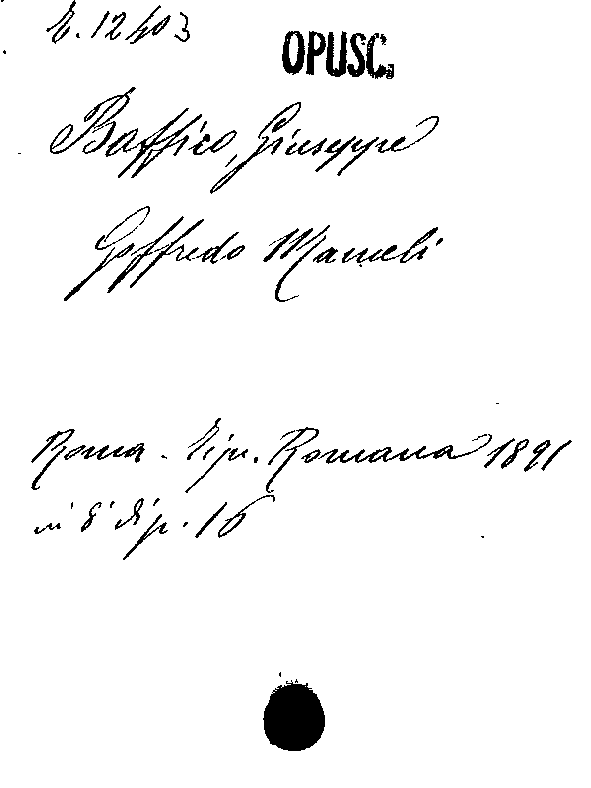 E. 12403
OPUSC.
Baffico, Giuseppe
Goffredo Mameli
Roma - Tip. Romana 1891
in 8° di p. 16